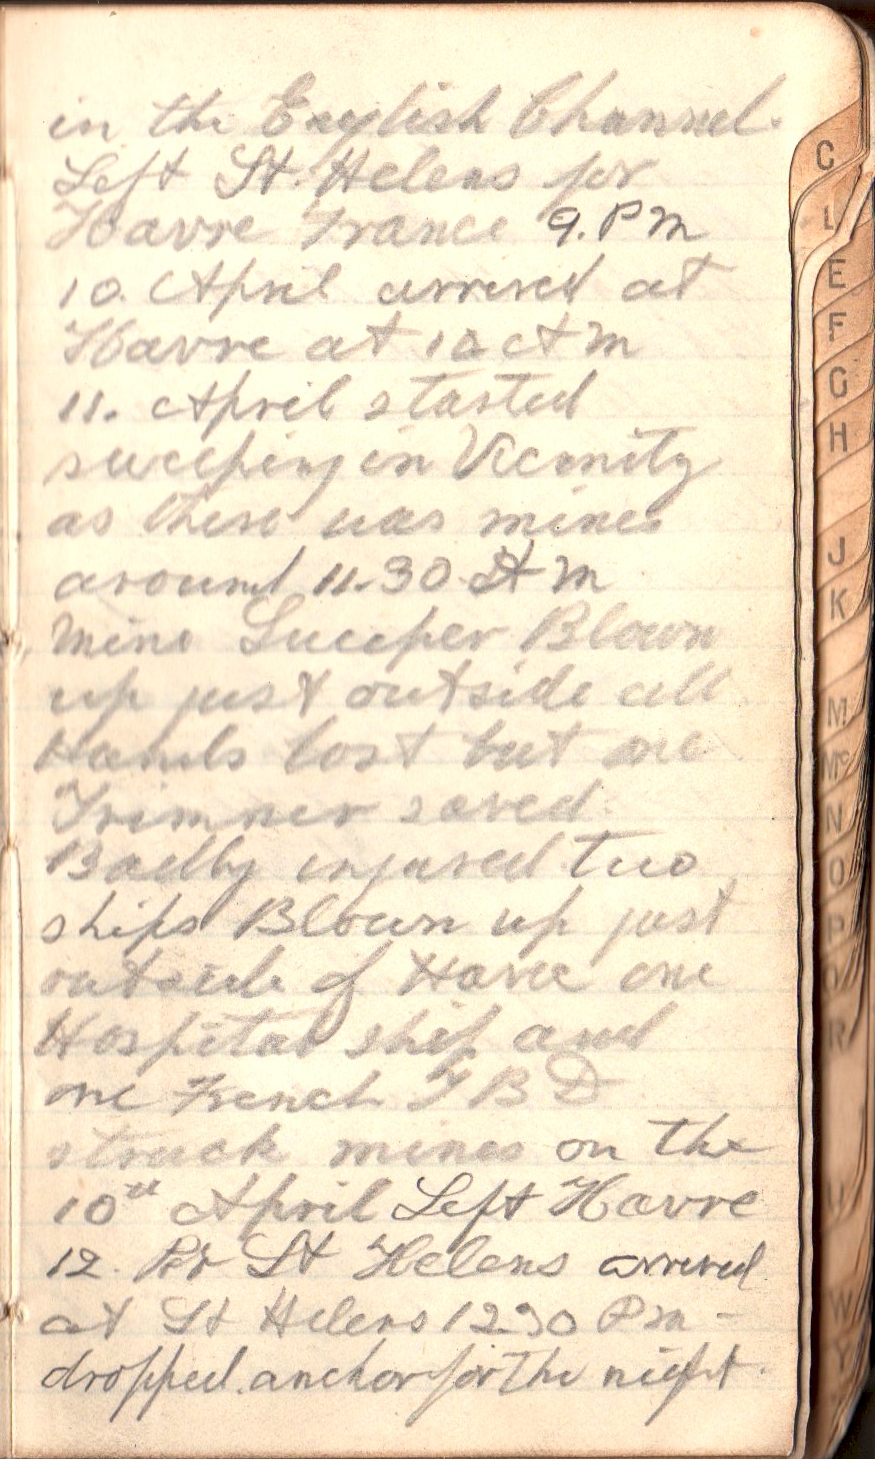 in the English Channel.
Left St. Helens for
Havre France 9. P M
10. April arrived at
Havre at 10 A M
11. April started
sweeping in Vicinity
as there was mines
around 11.30 A M
Mine Sweeper Blown
up just outside all
Hands lost but one
Trimner saved.
Badly injured two
ships Blown up just
outside of Havre one
Hospital ship and
one French T B D
struck mines on the
10th April Left Havre
12. For St Helens arrived
at St Helens 12.30 P m -
dropped anchor for the night.
C
L
E
F
G
H
J
K
M
Mc
N
O
P
Q
R
U
W
Y